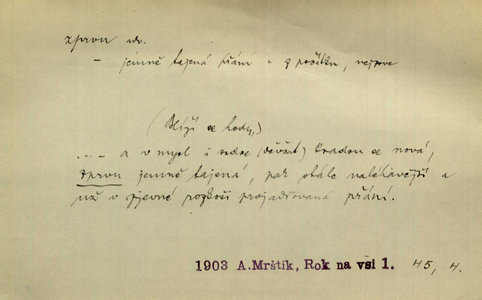 zprvu adv.
– jemně tajená přání = z počátku, nejprve
(Blíží se hody,)
... – a v mysl i srdce (děvčat) kradou se nová,
zprvu jemně tajená, pak stále naléhavější a
už v zjevné rozkoši projadřovaná přání.
1903 A.Mrštík, Rok na vsi 1. 45, 4.